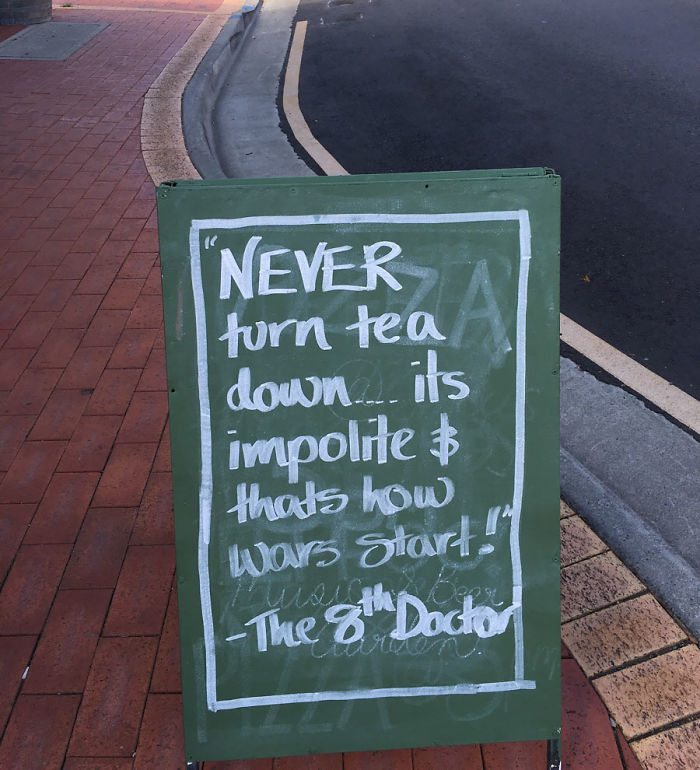 "NEVER
turn tea
down.... its
impolite &
thats how
wars start!"
-The 8th Doctor